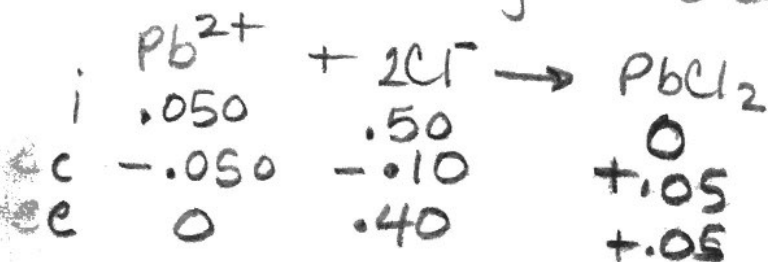 Pb²⁺ + 2Cl⁻ → PbCl₂
i .050 .50 0
c -.050 -.10 +.05
e 0 .40 +.05